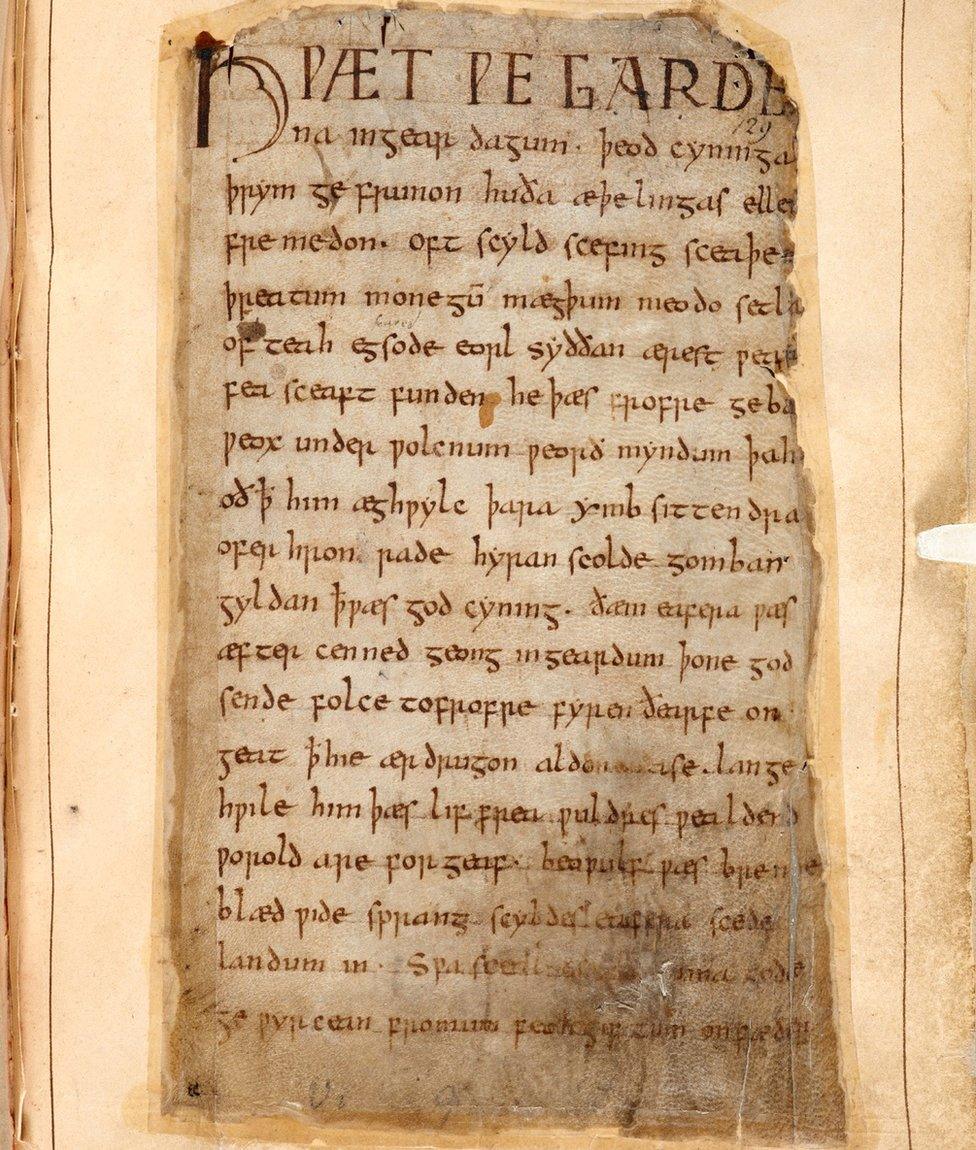 HǷÆT ǷE GARDE
129
na ingear dagum. þeod cyninga
þrym ge frunon huða æþelingas elle
fremedon. oft scyld scefing sceaþe
þreatum monegū mægþum meodo setla
of teah egsode eorl syððan ærest ƿear
fea sceaft funden he þæs frofre geba
ƿeox under ƿolcnum ƿeorð myndum þah
oð ꝥ him æghƿylc þara ymb sittendra
ofer hron rade hyran scolde gomban
gyldan ꝥ ƿæs god cyning. ðæm eafera ƿæs
æfter cenned geong ingeardum þone god
sende folce tofrofre fyren ðearfe on
geat ꝥ hie ær drugon lange
hƿile him þæs lif frea ƿuldres ƿealdend
ƿorold are for geaf. beoƿulf ƿæs breme
blæd ƿide sprang scyldes eafera scede
landum in. Sƿa gode
ge ƿyrcean fromum feoh giftum on fæder